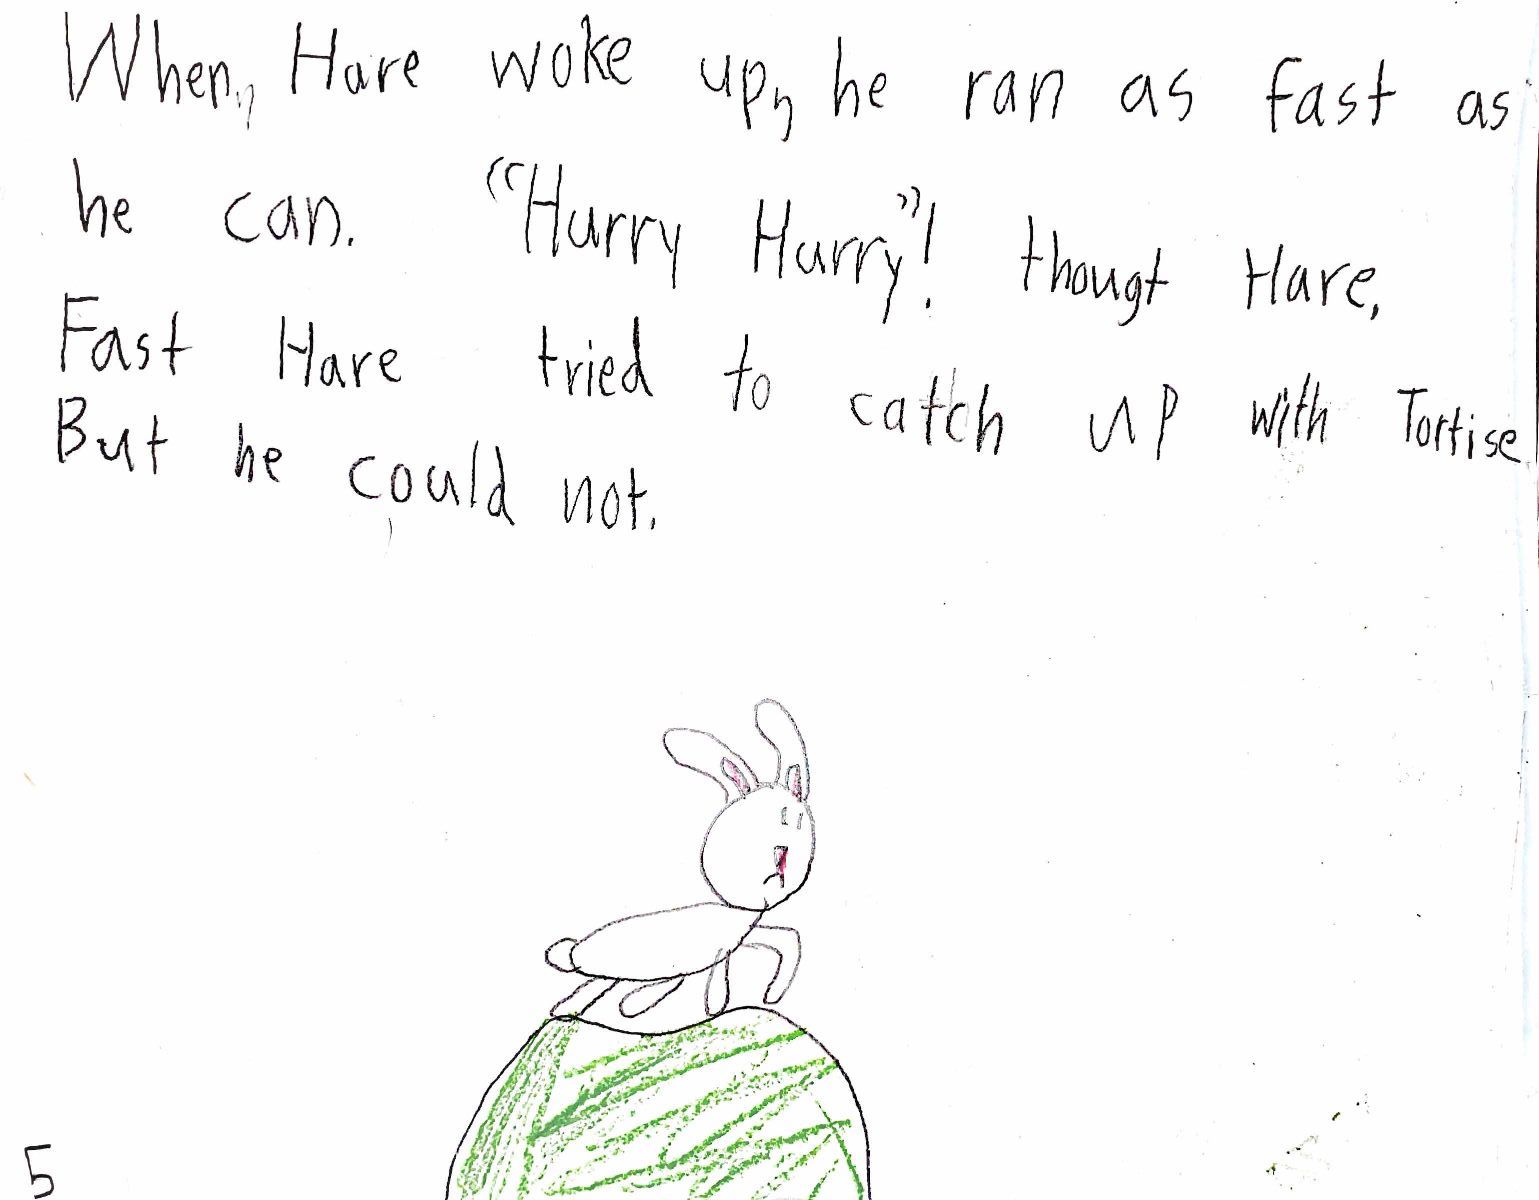 When, Hare woke up, he ran as fast as
he can. "Hurry Hurry"! thougt Hare.
Fast Hare tried to catch up with Tortise.
But he could not.
5